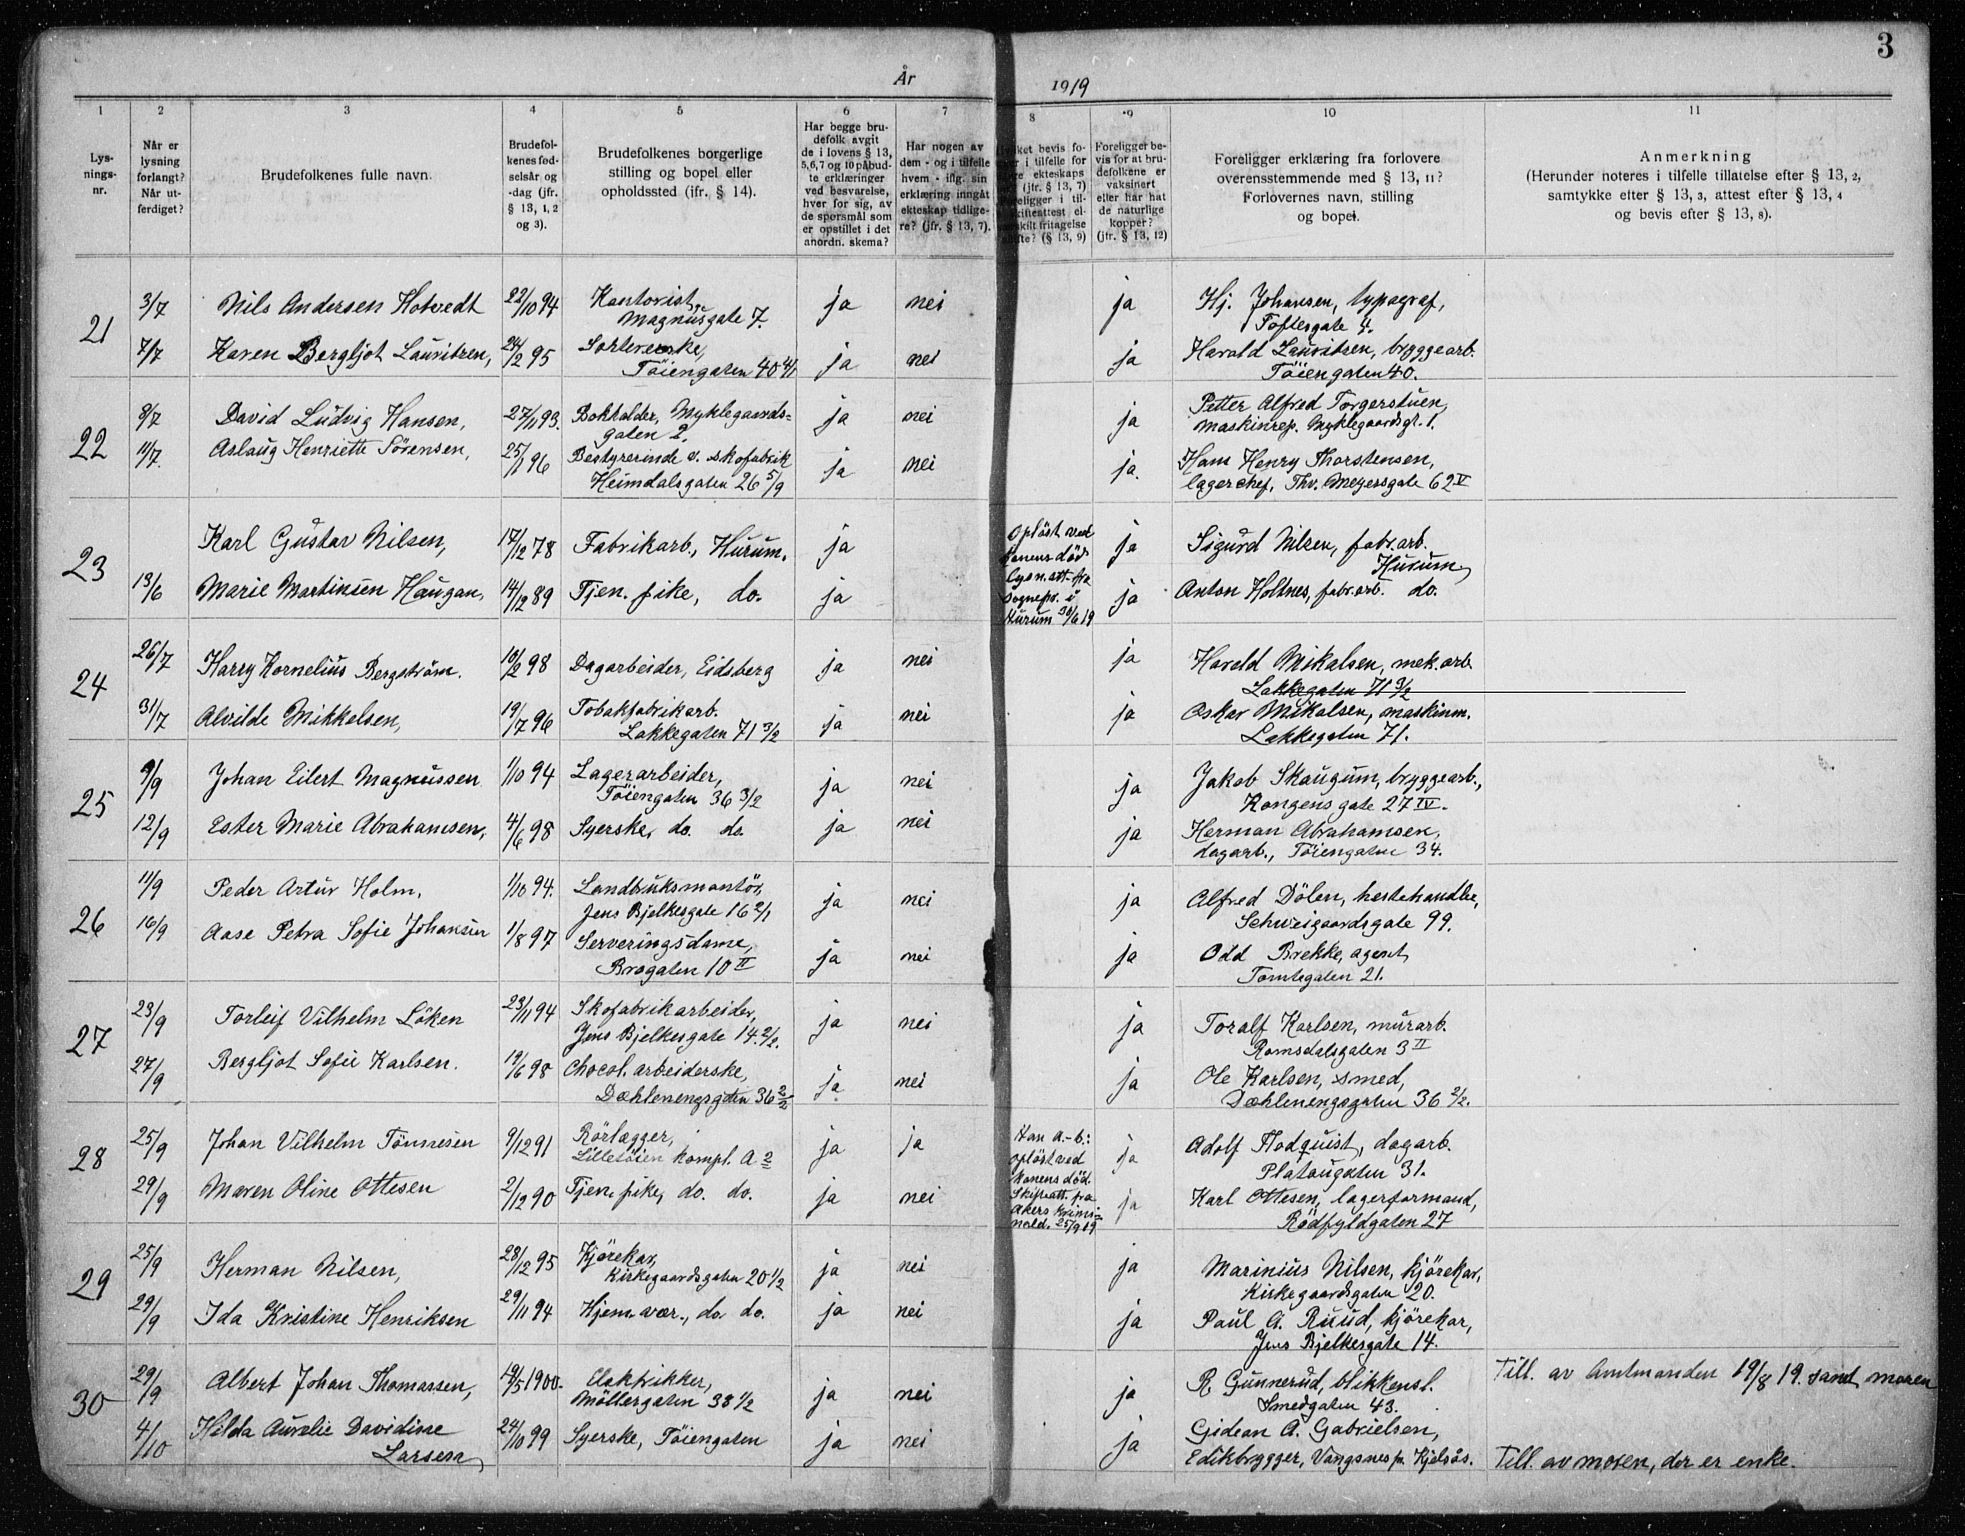 3
År 1919
1 2 3 4 5 6 7 8 9 10 11
Lys-
nings-
nr.
Når er
lysning
forlangt?
Når ut-
ferdiget?
Brudefolkenes fulle navn.
Brudefol-
kenes fød-
selsår og
-dag (jfr.
§ 13, 1, 2
og 3).
Brudefolkenes borgerlige
stilling og bopel eller
opholdssted (ifr. § 14).
Har begge bru-
defolk avgit
de i lovens § 13,
5,6,7 og 10 påbud-
te erklæringer
ved besvarelse,
hver for sig, av
de spørsmål som
er opstillet i det
anordn. skema?
Har nogen av
dem - og i tilfelle
hvem - iflg. sin
erklæring inngåt
ekteskap tidlige-
re? (jfr. § 13, 7).
bevis fo-
i tilfelle for
ekteskaps
(jfr. § 13, 7)
i til-
skifteattest el-
fritagelse
(§ 13, 9)
Foreligger be-
vis for at bru-
defolkene er
vaksinert
eller har hat
de naturlige
kopper?
(jfr. § 13, 12)
Foreligger erklæring fra forlovere
overensstemmende med § 13, 11?
Forlovernes navn, stilling
og bopel.
Anmerkning
(Herunder noteres i tilfelle tillatelse efter § 13, 2,
samtykke efter § 13, 3, attest efter § 13, 4
og bevis efter § 13, 8).
21
3/7 Nils Andersen Hotvedt 22/10 94 Kontorist, ja nei ja Hj. Johansen, typograf,
Magnusgate 7. Toftesgate 4.
7/7 Karen Bergljot Lauritzen, 24/2 95 ja nei ja Harald Lauritsen, bryggearb.
Töiengaten 40 4/1 Töiengaten 40.
22
8/7 David Ludvig Hansen, 27/11 93. Bokholder, Myklegaards= ja nei ja Petter Alfred Torgerstuen,
gaten 2. maskinrep. Myklegaardsgt. 1.
11/7. Aslaug Henriette Sörensen, 25/1 96 Bestyrerinde v. skofabrik ja nei ja. Hans Henry Thorstensen,
Heimdalsgaten 26 5/9 lagerchef, Thv. Meyersgate 62 V
23
Karl Gustav Nilsen, 17/12 78 Fabrikarb., Hurum. ja Opløst ved ja Sigurd Nilsen, fabr.arb.
konens död Hurum,
13/6 Marie Martinsen Haugan, 14/12 89 Tjen. pike, do. ja Lysn. att. fra ja Anton Holtnes, fabr.arb. do.
Sognepr. i
Hurum 30/6 19
24
26/7 Harry Kornelius Bergström. 10/2 98 Dagarbeider, Eidsberg ja nei ja Harald Mikalsen, mek. arb
Lakkegaten 71 3/2
31/7 Alvilde Mikkelsen, 19/7 96 Tobakfabrikarb. ja nei ja Oskar Mikalsen, maskinm.
Lakkegaten 71 3/2 Lakkegaten 71.
25
9/9 Johan Eilert Magnussen 1/10 94 Lagerarbeider, ja nei ja Jakob Skaugum, bryggearb.,
Töiengaten 36 3/2 Kongens gate 27 IV.
12/9 Ester Marie Abrahamsen, 4/6 98 Syerske, do. do ja nei ja Herman Abrahamsen,
dagarb., Töiengaten 34.
26
11/9 Peder Artur Holm, 1/10 94. Landbruksmontör, ja nei ja Alfred Dölen, hestehandler,
Jens Bjelkesgate 16 2/1 Schweigaardsgate 99.
16/9 Aase Petra Sofie Johansen 1/8 97 Serveringsdame, ja nei ja Odd Brekke, agent,
Brogaten 10 II Tomtegaten 21.
27
23/9 Torleif Vilhelm Löken 23/11 94 Skofabrikarbeider, ja nei ja Toralf Karlsen, murarb.
Jens Bjelkesgate 14. 2/2. Romsdalsgaten 3 II
27/9 Bergljot Sofie Karlsen. 19/6 98 Chocol. arbeiderske, ja nei ja Ole Karlsen, smed,
Dæhlenengsgaten 36 2/2 Dæhlenengsgaten 36 2/2.
28
25/9 Johan Vilhelm Tönnesen 9/12 91 Rörlægger, ja ja Han a.-b.: ja Adolf Flodquist, dagarb.
Lilletöien kompl. A 2 opløst ved Plataugaten 31.
29/9 Maren Oline Ottesen 2/12 90 Tjen. pike, do. do. ja nei konens död. ja Karl Ottesen, lagerformand,
Skifteatt. fra Rödfyldgaten 27
Akers krimi=
nald. 25/9 19
29
25/9 Herman Nilsen, 28/12 95 Kjörekar, ja nei ja Marinius Nilsen, kjörekar,
Kirkegaardsgaten 20 1/2 Kirkegaardsgaten 20.
29/9 Ida Kristine Henriksen 29/11 94 Hjem. vær., do. do. ja nei ja Paul A. Ruud, kjörekar,
Jens Bjelkesgate 14.
30
29/9 Albert Johan Thomassen, 19/5 1900. Elektrikker, ja nei ja R. Gunnerud, blikkensl. Till. av Amtmanden 19/8 19. samt moren
Möllergaten 38 1/2 Smedgaten 43.
4/10 Hilda Aurelie Davidine 24/10 99 Syerske, Töiengaten ja nei ja Gidean A. Gabrielsen,
Larsen, Edikbrygger, Vangsnes pr. Kjelsås. Till. av moren, der er enke.